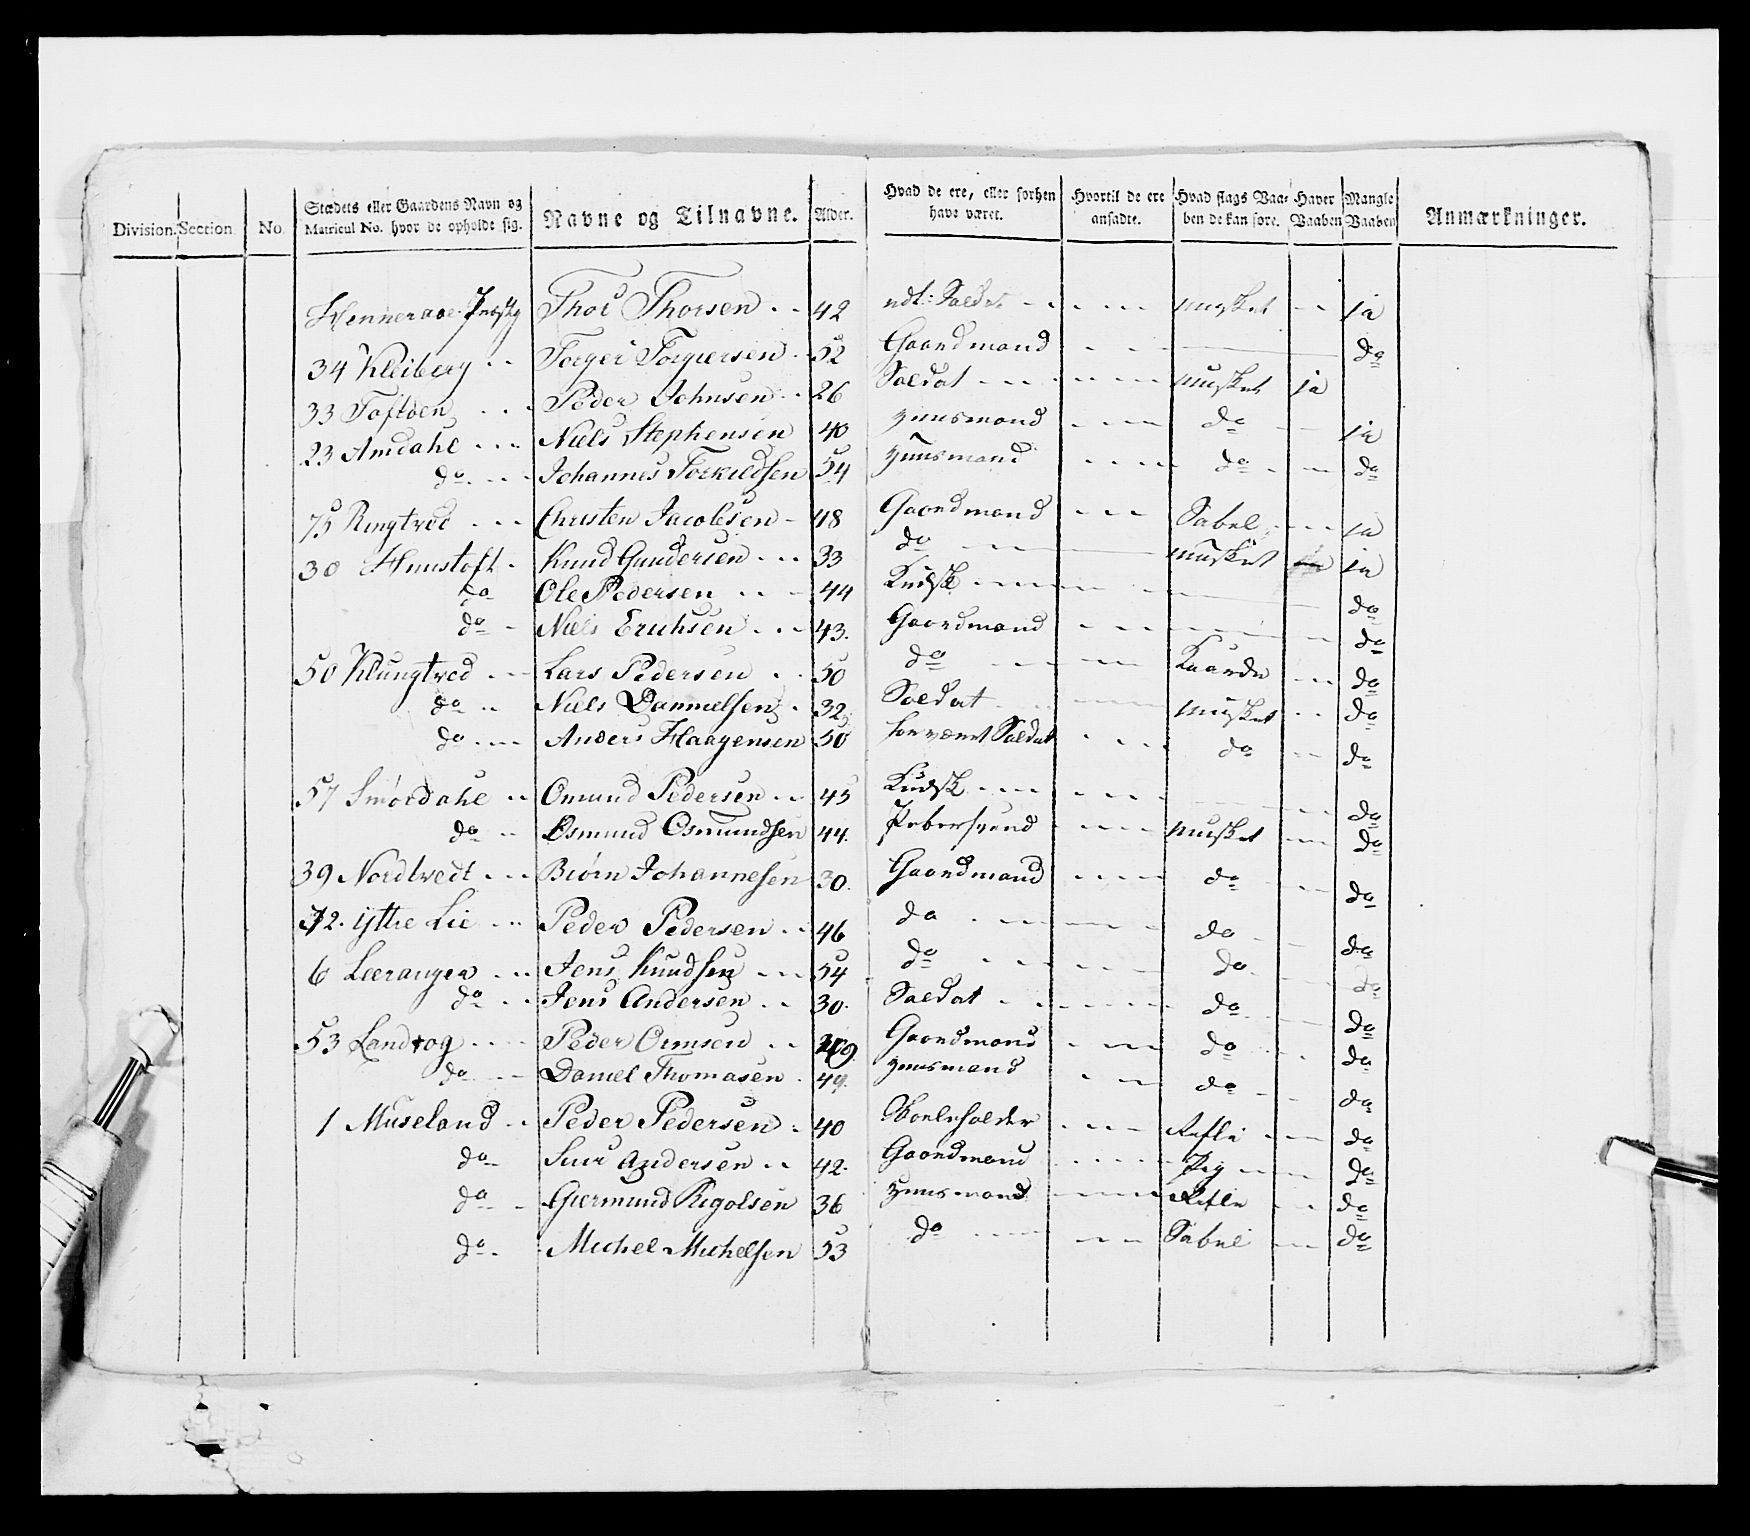 Division. Section. No. Stædets eller Gaardens Navn og Matricul No. hvor de opholde sig. Navne og Tilnavne. Alder. Hvad de ere, eller forhen have været. Hvortil de ere ansadte. Hvad slags Vaaben de kan føre. Haver Vaaben Mangle Vaaben Anmærkninger.
Thor Thorsen 42 ndl: Soldat musket ja
34 Kleiberg Torger Torgiersen 52 Gaardmand do
33 Toftøen Peder Johnsen 26 Soldat musket ja
23 Amdahl Niels Stephensen 40 Huusmand do ja
do Johannes Torkildsen 54 Huusmand do do
75 Ringtved Christen Jacobsen 48 Gaardmand Sabel ja
30 Hunstoft Knud Gundersen 33 do musket ja
do Ole Pedersen 44 Kudsk do
do Niels Erichsen 43. Gaardmand do
50 Klungtved Lars Pedersen 50 do Kaarde do
do Niels Dannielsen 32 Soldat musket do
do Anders Haagensen 50 Soldat do do
57 Smørdahl Omund Pedersen 45 Kudsk do
do Osmund Osmundsen 44. Pebersvend musket do
39 Nordtvedt Biørn Johannesen 30. Gaardmand do do
72. ÿttre Lie Peder Pedersen 46 do do do
6 Leeranger Jens Knudsen 54 do do do
do Jens Andersen 30. Soldat do do
53 Landrog Peder Ormsen Gaardmand do do
do Daniel Thomasen 49. Huusmand do do
1 Museland Peder Pedersen 40 Skoeleholder Refle do
do Andersen 42. Gaardmand Pig do
do Giermund Rigolsen 36 Huusmand Refle do
do Michel Michelsen 53 do Sabel do